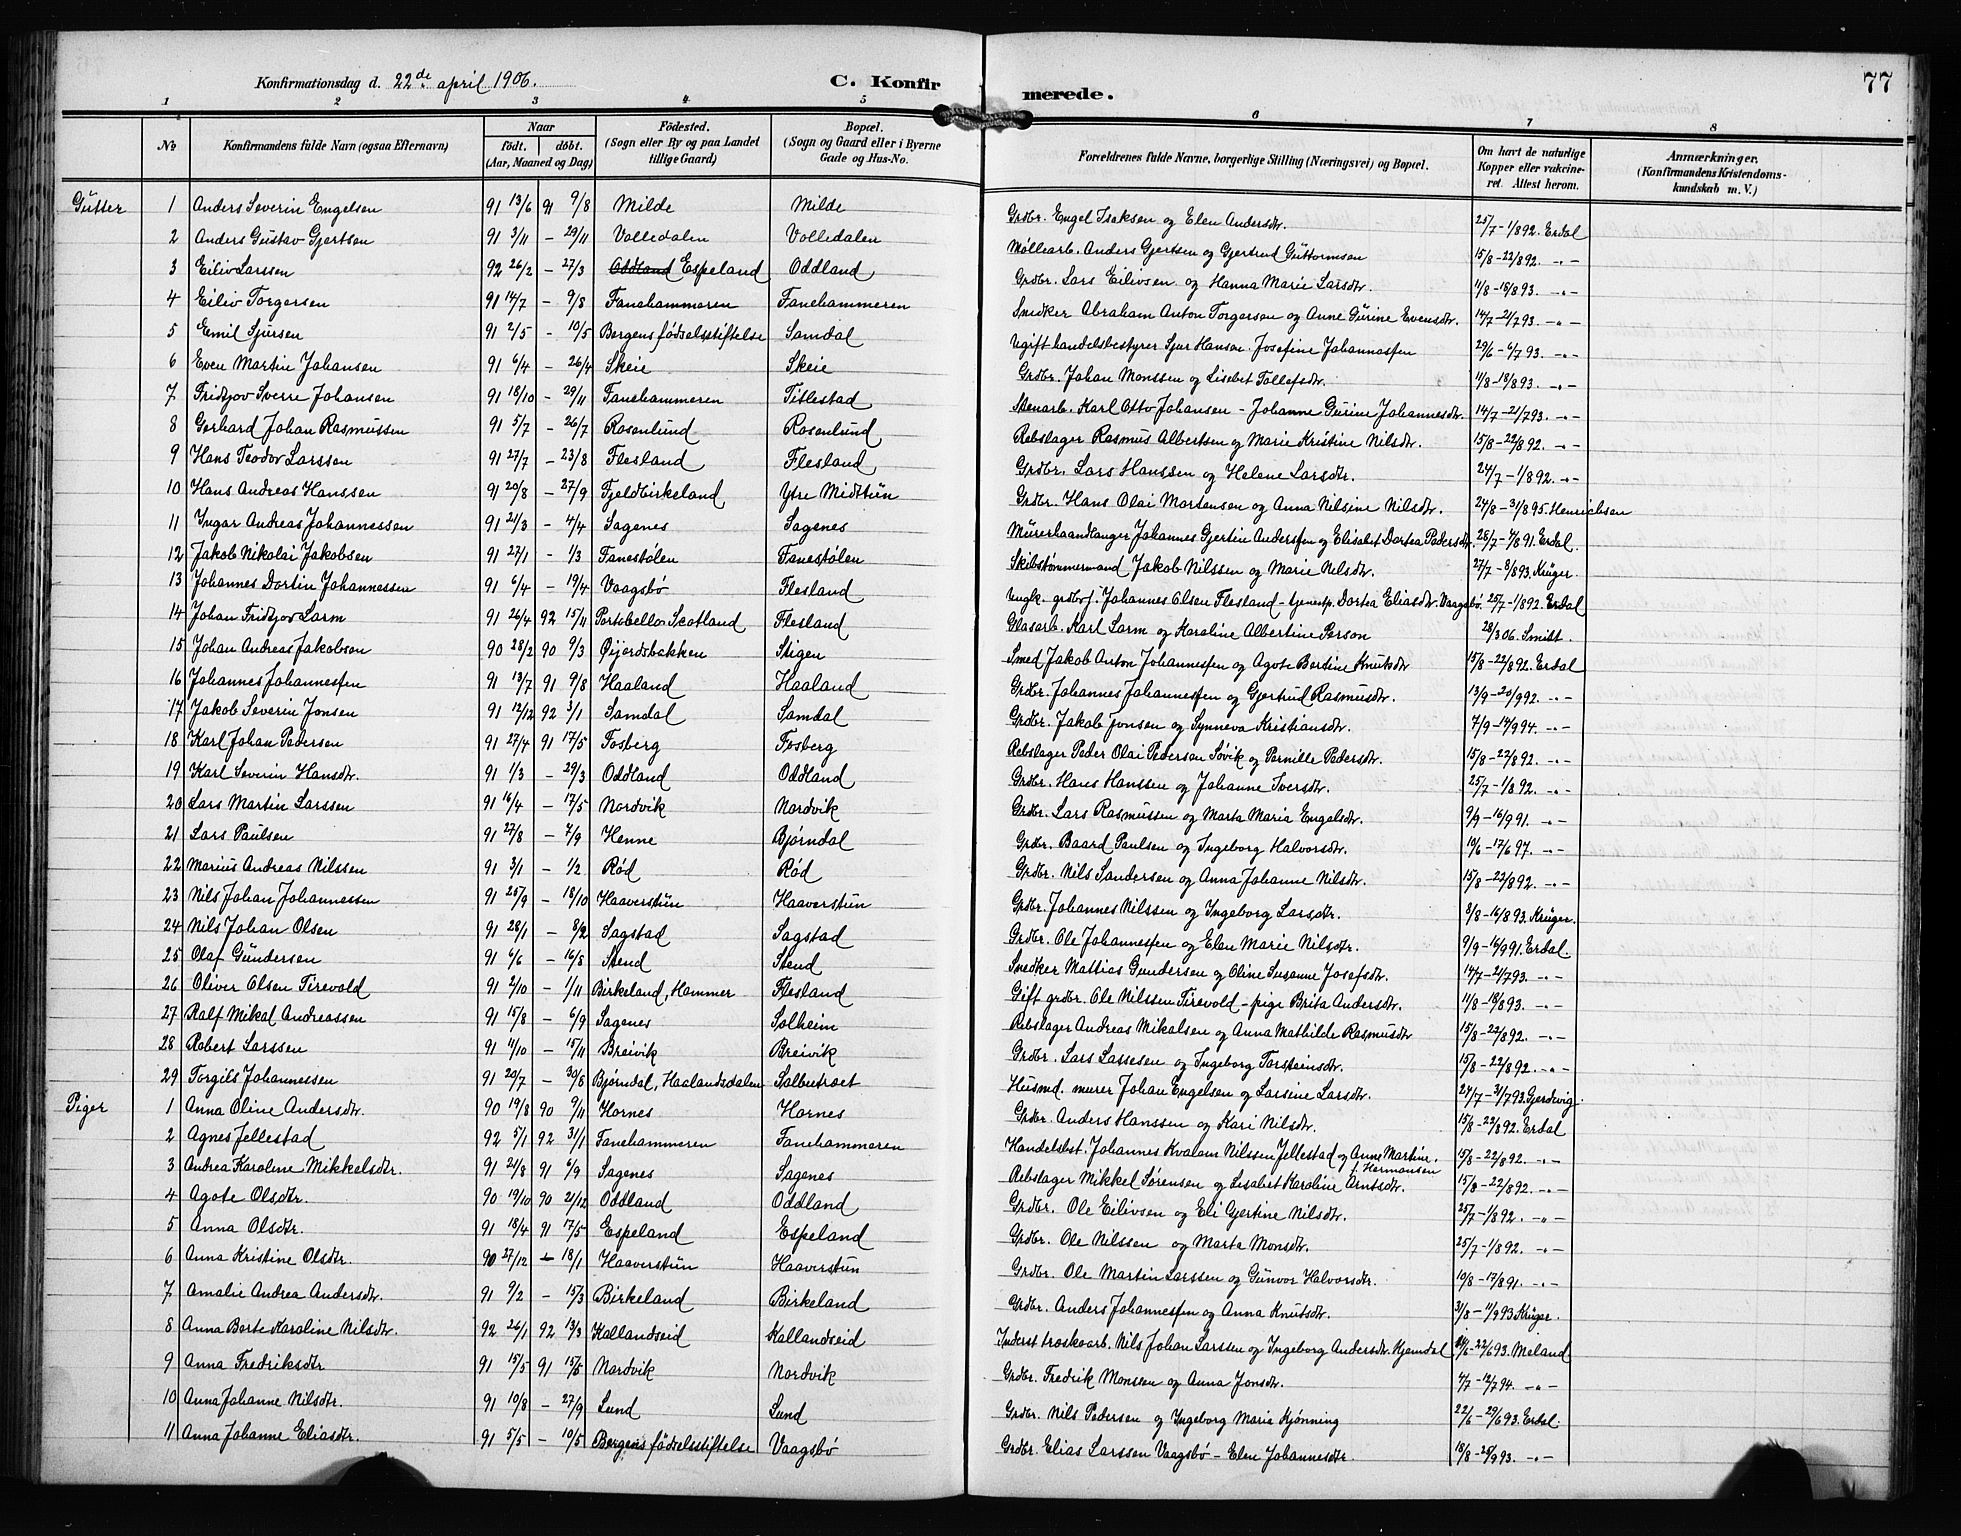 77
Konfirmationsdag d. 22de april 1906.
C. Konfirmerede.
1 2 3 4 5 6 7 8
No
Konfirmandens fulde Navn (ogsaa Efternavn)
Naar
født. døbt.
(Aar, Maaned og Dag)
Fødested.
(Sogn eller By og paa Landet
tillige Gaard)
Bopæl.
(Sogn og Gaard eller i Byerne
Gade og Hus-No.
Forældrenes fulde Navne, borgerlige Stilling (Næringsvei) og Bopæl.
Om havt de naturlige
Kopper eller vakcine-
ret. Attest herom.
Anmærkninger.
(Konfirmandens Kristendoms-
kundskab m. V.)
Gutter 1 Anders Severin Engelsen 91 13/6 91 9/8 Milde Milde Grdbr. Engel Isaksen og Elen Andersdtr. 25/7-1/8 92. Erdal
2 Anders Gustav Gjertsen 91 3/11 - 29/11 Volledalen Volledalen Møllearb. Anders Gjertsen og Gjertrud Guttormsen 15/8-22/8 92. -"-
3 Eiliv Larssen 92 26/2 - 27/3 Oddland Espeland Oddland Grdbr. Lars Eilivsen og Hanna Marie Larsdtr. 11/8-18/8 93. -"-
4 Eiliv Torgersen 91 14/7 - 9/8 Fanehammeren Fanehammeren Snedker Abraham Anton Torgersen og Anne Gurine Evensdtr. 14/7-21/7 93. -"-
5 Emil Sjursen 91 2/5 - 10/5 Bergens fødselsstiftelse Samdal Ugift handelsbestyrer Sjur Hansen. Josefine Johannessen 29/6-6/7 93. -"-
6 Even Martin Johansen 91 6/4 - 26/4 Skeie Skeie Grdbr. Johan Monssen og Lisebet Tollefsdtr. 11/8-18/8 93. -"-
7 Fridtjov Sverre Johansen 91 18/10 - 29/11 Fanehammeren Titlestad Stenarb. Karl Otto Johansen - Johanne Gurine Johannesdtr. 14/7-21/7 93. -"-
8 Gerhard Johan Rasmussen 91 5/7 - 26/7 Rosenlund Rosenlund Rebslager Rasmus Albertsen og Marie Kristine Nilsdtr. 15/8-22/8 92. -"-
9 Hans Teodor Larssen 91 27/7 - 23/8 Flesland Flesland Grdbr. Lars Hanssen og Helene Larsdtr. 24/7-1/8 92. -"-
10 Hans Andreas Hanssen 91 20/8 - 27/9 Fjeldbirkeland Ytre Midttun Grdbr. Hans Olai Mortensen og Anna Nilsine Nilsdtr. 24/8-31/8 95. Henrichsen
11 Ingar Andreas Johannessen 91 21/3 - 4/4 Sagenes Sagenes Murerhaandlanger Johannes Gjertin Anderssen og Elisabet Dortea Pedersdtr. 25/7-4/8 91. Erdal.
12 Jakob Nikolai Jakobsen 91 27/1 - 1/3 Fanestølen Fanestølen Skibstømmermand Jakob Nilssen og Marie Nilsdtr. 27/7-8/8 93. Krüger.
13 Johannes Dortin Johannessen 91 6/4 - 19/4 Vaagsbø Flesland Ungk. grdbrs. Johannes Olsen Flesland - tjenestp. Dortea Eliasdtr. Vaagsbø. 25/7-1/8 92. Erdal
14 Johan Fridtjov Larm 91 26/4 92 15/11 Portobello Scotland Flesland Glasarb. Karl Larm og Karoline Albertine Person 28/3 06. Smitt.
15 Johan Andreas Jakobsen 90 28/2 90 9/3 Øijordsbakken Stigen Smed Jakob Anton Johannessen og Agote Bertine Knutsdtr 15/8-22/8 92. Erdal
16 Johannes Johannessen 91 13/7 91 9/8 Haaland Haaland Grdbr. Johannes Johannessen og Gjertrud Rasmusdtr. 13/9-20/9 92. -"-
17 Jakob Severin Jonsen 91 12/12 92 3/1 Samdal Samdal Grdbr. Jakob Jonsen og Synneva Kristiansdtr. 7/9-14/9 94. -"-
18 Karl Johan Pedersen 91 27/4 91 17/5 Fosberg Fosberg Rebslager Peder Olai Pedersen Søvik og Pernille Pedersdtr. 15/8-22/8 92. -"-
19 Karl Severin Hansdtr. 91 1/3 - 29/3 Oddland Oddland Grdbr. Hans Hanssen og Johanne Iversdtr. 25/7-1/8 92. -"-
20 Lars Martin Larssen 91 16/4 - 17/5 Nordvik Nordvik Grdbr. Lars Rasmussen og Marta Maria Engelsdtr. 9/9-16/9 91. -"-
21 Lars Paulsen 91 27/8 - 7/9 Henne Bjørndal Grdbr. Baard Paulsen og Ingeborg Halvorsdtr. 10/6-17/6 97. -"-
22 Marius Andreas Nilssen 91 3/1 - 1/2 Rød Rød Grdbr. Nils Sandersen og Anna Johanne Nilsdtr. 15/8-22/8 92. -"-
23 Nils Johan Johannessen 91 25/9 - 18/10 Haaverstun Haaverstun Grdbr. Johannes Nilssen og Ingeborg Larsdtr. 3/8-16/8 93. Krüger.
24 Nils Johan Olsen 91 28/1 - 8/2 Sagstad Sagstad Grdbr. Ole Johannessen og Elen Marie Nilsdtr. 9/9-16/9 91. Erdal.
25 Olaf Gundersen 91 6/6 - 16/8 Stend Stend Snedker Mattias Gundersen og Oline Susanne Josefsdtr. 14/7-21/7 93. -"-
26 Oliver Olsen Tirevold 91 2/10 - 1/11 Birkeland, Hammer Flesland Gift grdbr. Ole Nilssen Tirevold - pige Brita Andersdtr. 11/8-18/8 93. -"-
27 Ralf Mikal Andreassen 91 15/8 - 6/9 Sagenes Solheim Rebslager Andreas Mikalsen og Anna Mathilde Rasmusdtr 15/8-22/8 92. -"-
28 Robert Larssen 91 4/10 - 15/11 Breivik Breivik Grdbr. Lars Lassesen og Ingeborg Torsteinsdtr. 15/8-22/8 92. -"-
29 Torgils Johannessen 91 20/7 - 30/8 Bjørndal, Haalandsdalen Solbutræet Husmd. murer Johan Engelsen og Larsine Larsdtr. 24/7-31/7 93. Gjerdevig.
Piger 1 Anna Oline Andersdtr. 90 19/8 90 9/11 Hornes Hornes Grdbr. Anders Hanssen og Kari Nilsdtr. 15/8-22/8 92. Erdal
2 Agnes Jellestad 92 5/1 92 31/1 Fanehammeren Fanehammeren Handelsbst. Johannes Kvalam Nilssen Jellestad og Anne Martine Hermansen 15/8-22/8 92. -"-
3 Andrea Karoline Mikkelsdtr. 91 21/8 91 6/9 Sagenes Sagenes Rebslager Mikkel Sørensen og Lisabet Karoline Arntsdtr. 15/8-22/8 92. -"-
4 Agote Olsdtr. 90 19/10 90 21/12 Oddland Oddland Grdbr. Ole Eilivsen og Eli Gjertine Nilsdtr. 25/7-1/8 92. -"-
5 Anna Olsdtr. 91 18/4 91 17/5 Espeland Espeland Grdbr. Ole Nilssen og Marta Monsdtr. 25/7-1/8 92. -"-
6 Anna Kristine Olsdtr. 90 27/12 - 18/1 Haaverstun Haaverstun Grdbr. Ole Martin Larssen og Gunvor Halvorsdtr. 10/8-17/8 91. -"-
7 Amalie Andrea Andersdtr. 91 9/2 - 15/3 Birkeland Birkeland Grdbr. Anders Johannessen og Anna Knutsdtr. 3/8-11/9 93 Krüger.
8 Anna Berte Karoline Nilsdtr. 92 26/1 92 13/3 Kallandseid Kallandseid Inderst træskoarb. Nils Johan Larssen og Ingeborg Andersdtr. Hjemdal 22/6 93. Meland
9 Anna Fredriksdtr 91 15/5 91 15/6 Nordvik Nordvik Grdbr. Fredrik Monsen og Anna Jonsdtr. 4/7-12/7 94. -"-
10 Anna Johanne Nilsdtr. 91 10/8 - 27/9 Lund Lund Grdbr. Nils Pedersen og Ingeborg Maria Kjønning 22/6-29/6 93. Erdal.
11 Anna Johanne Eliasdtr. 91 5/5 - 10/5 Bergens fødselsstiftelse Vaagsbø Grdbr. Elias Larssen Vaagsbø - Elen Johannesdtr. 18/8-25/9 93. -"-